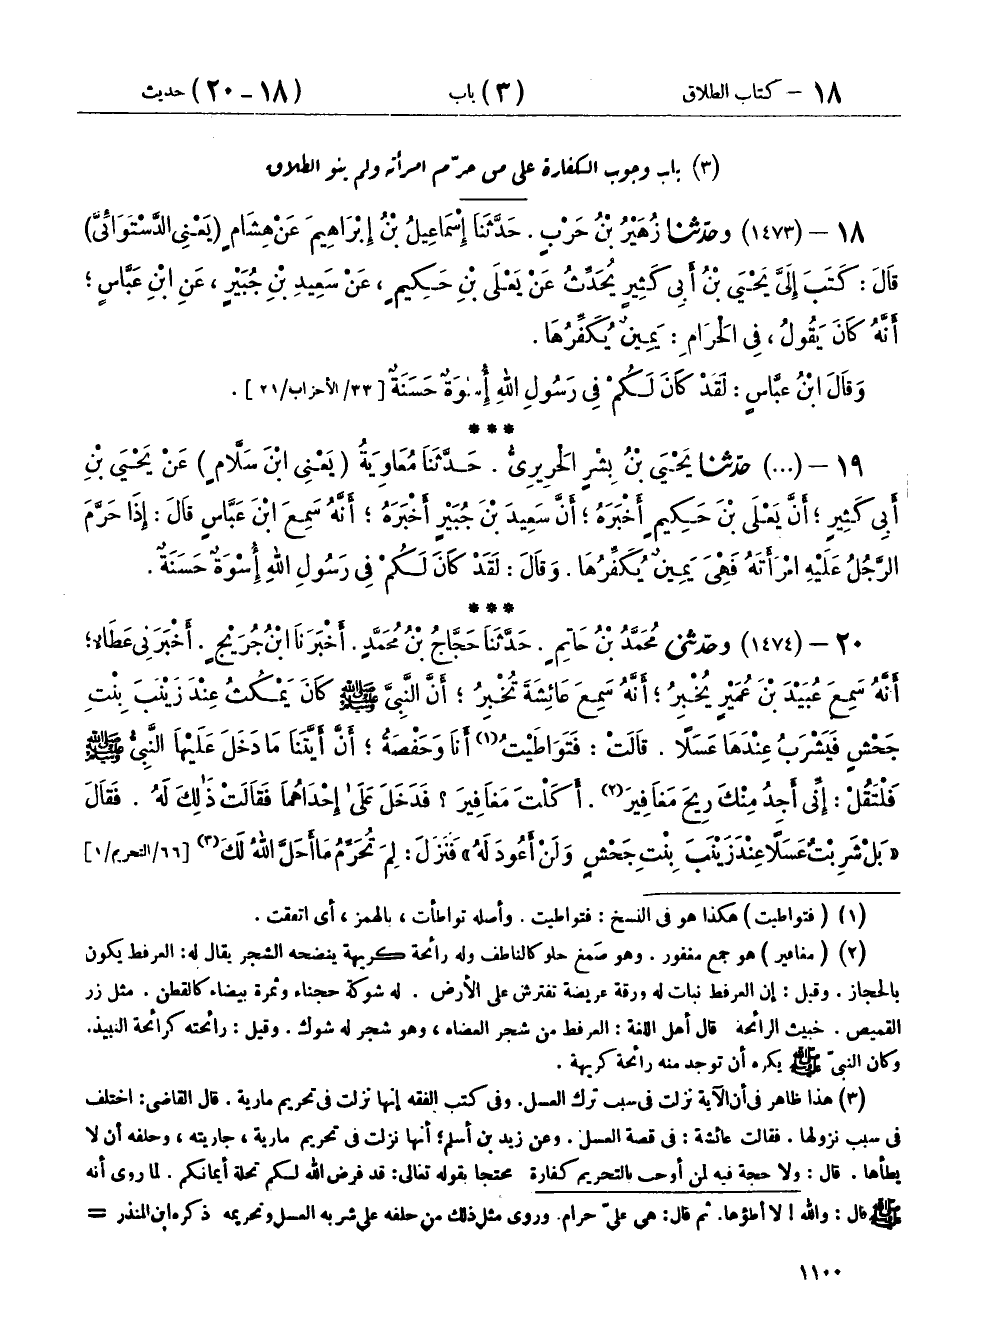 ١٨ – كتاب الطلاق (٣) باب (١٨ – ٢٠) حديث
(٣) باب وجوب الكفارة على من حرّم امرأته ولم ينو الطلاق
١٨ – (١٤٧٣) وحدّثنا زُهَيْرُ بْنُ حَرْبٍ . حَدَّثَنَا إِسْمَاعِيلُ بْنُ إِبْرَاهِيمَ عَنْ هِشَامٍ (يَعْنِي الدَّسْتَوَائِيَّ)
قَالَ : كَتَبَ إِلَيَّ يَحْيَى بْنُ أَبِي كَثِيرٍ يُحَدِّثُ عَنْ يَعْلَى بْنِ حَكِيمٍ ، عَنْ سَعِيدِ بْنِ جُبَيْرٍ ، عَنِ ابْنِ عَبَّاسٍ ؛
أَنَّهُ كَانَ يَقُولُ ، فِي الْحَرَامِ : يَمِينٌ يُكَفِّرُهَا .
وَقَالَ ابْنُ عَبَّاسٍ : لَقَدْ كَانَ لَكُمْ فِي رَسُولِ اللهِ أُسْوَةٌ حَسَنَةٌ [ ٣٣/ الأحزاب/ ٢١ ] .
***
١٩ – (...) حدّثنا يَحْيَى بْنُ بِشْرٍ الْحَرِيرِيُّ . حَدَّثَنَا مُعَاوِيَةُ ( يَعْنِي ابْنَ سَلَّامٍ ) عَنْ يَحْيَى بْنِ
أَبِي كَثِيرٍ ؛ أَنَّ يَعْلَى بْنَ حَكِيمٍ أَخْبَرَهُ ؛ أَنَّ سَعِيدَ بْنَ جُبَيْرٍ أَخْبَرَهُ ؛ أَنَّهُ سَمِعَ ابْنَ عَبَّاسٍ قَالَ : إِذَا حَرَّمَ
الرَّجُلُ عَلَيْهِ امْرَأَتَهُ فَهْيَ يَمِينٌ يُكَفِّرُهَا . وَقَالَ : لَقَدْ كَانَ لَكُمْ فِي رَسُولِ اللهِ أُسْوَةٌ حَسَنَةٌ .
***
٢٠ – (١٤٧٤) وحدّثني مُحَمَّدُ بْنُ حَاتِمٍ . حَدَّثَنَا حَجَّاجُ بْنُ مُحَمَّدٍ . أَخْبَرَنَا ابْنُ جُرَيْجٍ . أَخْبَرَنِي عَطَاءٌ ؛
أَنَّهُ سَمِعَ عُبَيْدَ بْنَ عُمَيْرٍ يُخْبِرُ ؛ أَنَّهُ سَمِعَ عَائِشَةَ تُخْبِرُ ؛ أَنَّ النَّبِيَّ ﷺ كَانَ يَمْكُثُ عِنْدَ زَيْنَبَ بِنْتِ
جَحْشٍ فَيَشْرَبُ عِنْدَهَا عَسَلًا . قَالَتْ : فَتَوَاطَيْتُ(١) أَنَا وَحَفْصَةُ ؛ أَنَّ أَيَّتَنَا مَا دَخَلَ عَلَيْهَا النَّبِيُّ ﷺ
فَلْتَقُلْ : إِنِّي أَجِدُ مِنْكَ رِيحَ مَغَافِيرَ(٢) . أَكَلْتَ مَغَافِيرَ ؟ فَدَخَلَ عَلَى إِحْدَاهُمَا فَقَالَتْ ذَلِكَ لَهُ . فَقَالَ
« بَلْ شَرِبْتُ عَسَلًا عِنْدَ زَيْنَبَ بِنْتِ جَحْشٍ وَلَنْ أَعُودَ لَهُ » فَنَزَلَ : لِمَ تُحَرِّمُ مَا أَحَلَّ اللهُ لَكَ(٣) [ ٦٦/ التحريم/ ١ ]
(١) ( فتواطيت ) هكذا هو في النسخ : فتواطيت . وأصله تواطأت ، بالهمز ، أي اتفقت .
(٢) ( مغافير ) هو جمع مغفور . وهو صمغ حلو كالناطف وله رائحة كريهة ينضحه الشجر يقال له : العرفط يكون
بالحجاز . وقيل : إن العرفط نبات له ورقة عريضة تفترش على الأرض . له شوكة حجناء وثمرة بيضاء كالقطن . مثل زر
القميص . خبيث الرائحة قال أهل اللغة : العرفط من شجر العضاه ، وهو شجر له شوك . وقيل : رائحته كرائحة النبيذ .
وكان النبيّ ﷺ يكره أن توجد منه رائحة كريهة .
(٣) هذا ظاهر في أن الآية نزلت في سبب ترك العسل . وفي كتب الفقه إنها نزلت في تحريم مارية . قال القاضي : اختلف
في سبب نزولها . فقالت عائشة : في قصة العسل . وعن زيد بن أسلم ؛ أنها نزلت في تحريم مارية ، جاريته ، وحلفه أن لا
يطأها . قال : ولا حجة فيه لمن أوجب بالتحريم كفارة محتجا بقوله تعالى : قد فرض الله لكم تحلة أيمانكم . لما روى أنه
ﷺ قال : والله ! لا أطؤها . ثم قال : هي عليّ حرام . وروى مثل ذلك من حلفه على شربه العسل وتحريمه ذكره ابن المنذر =
١١٠٠